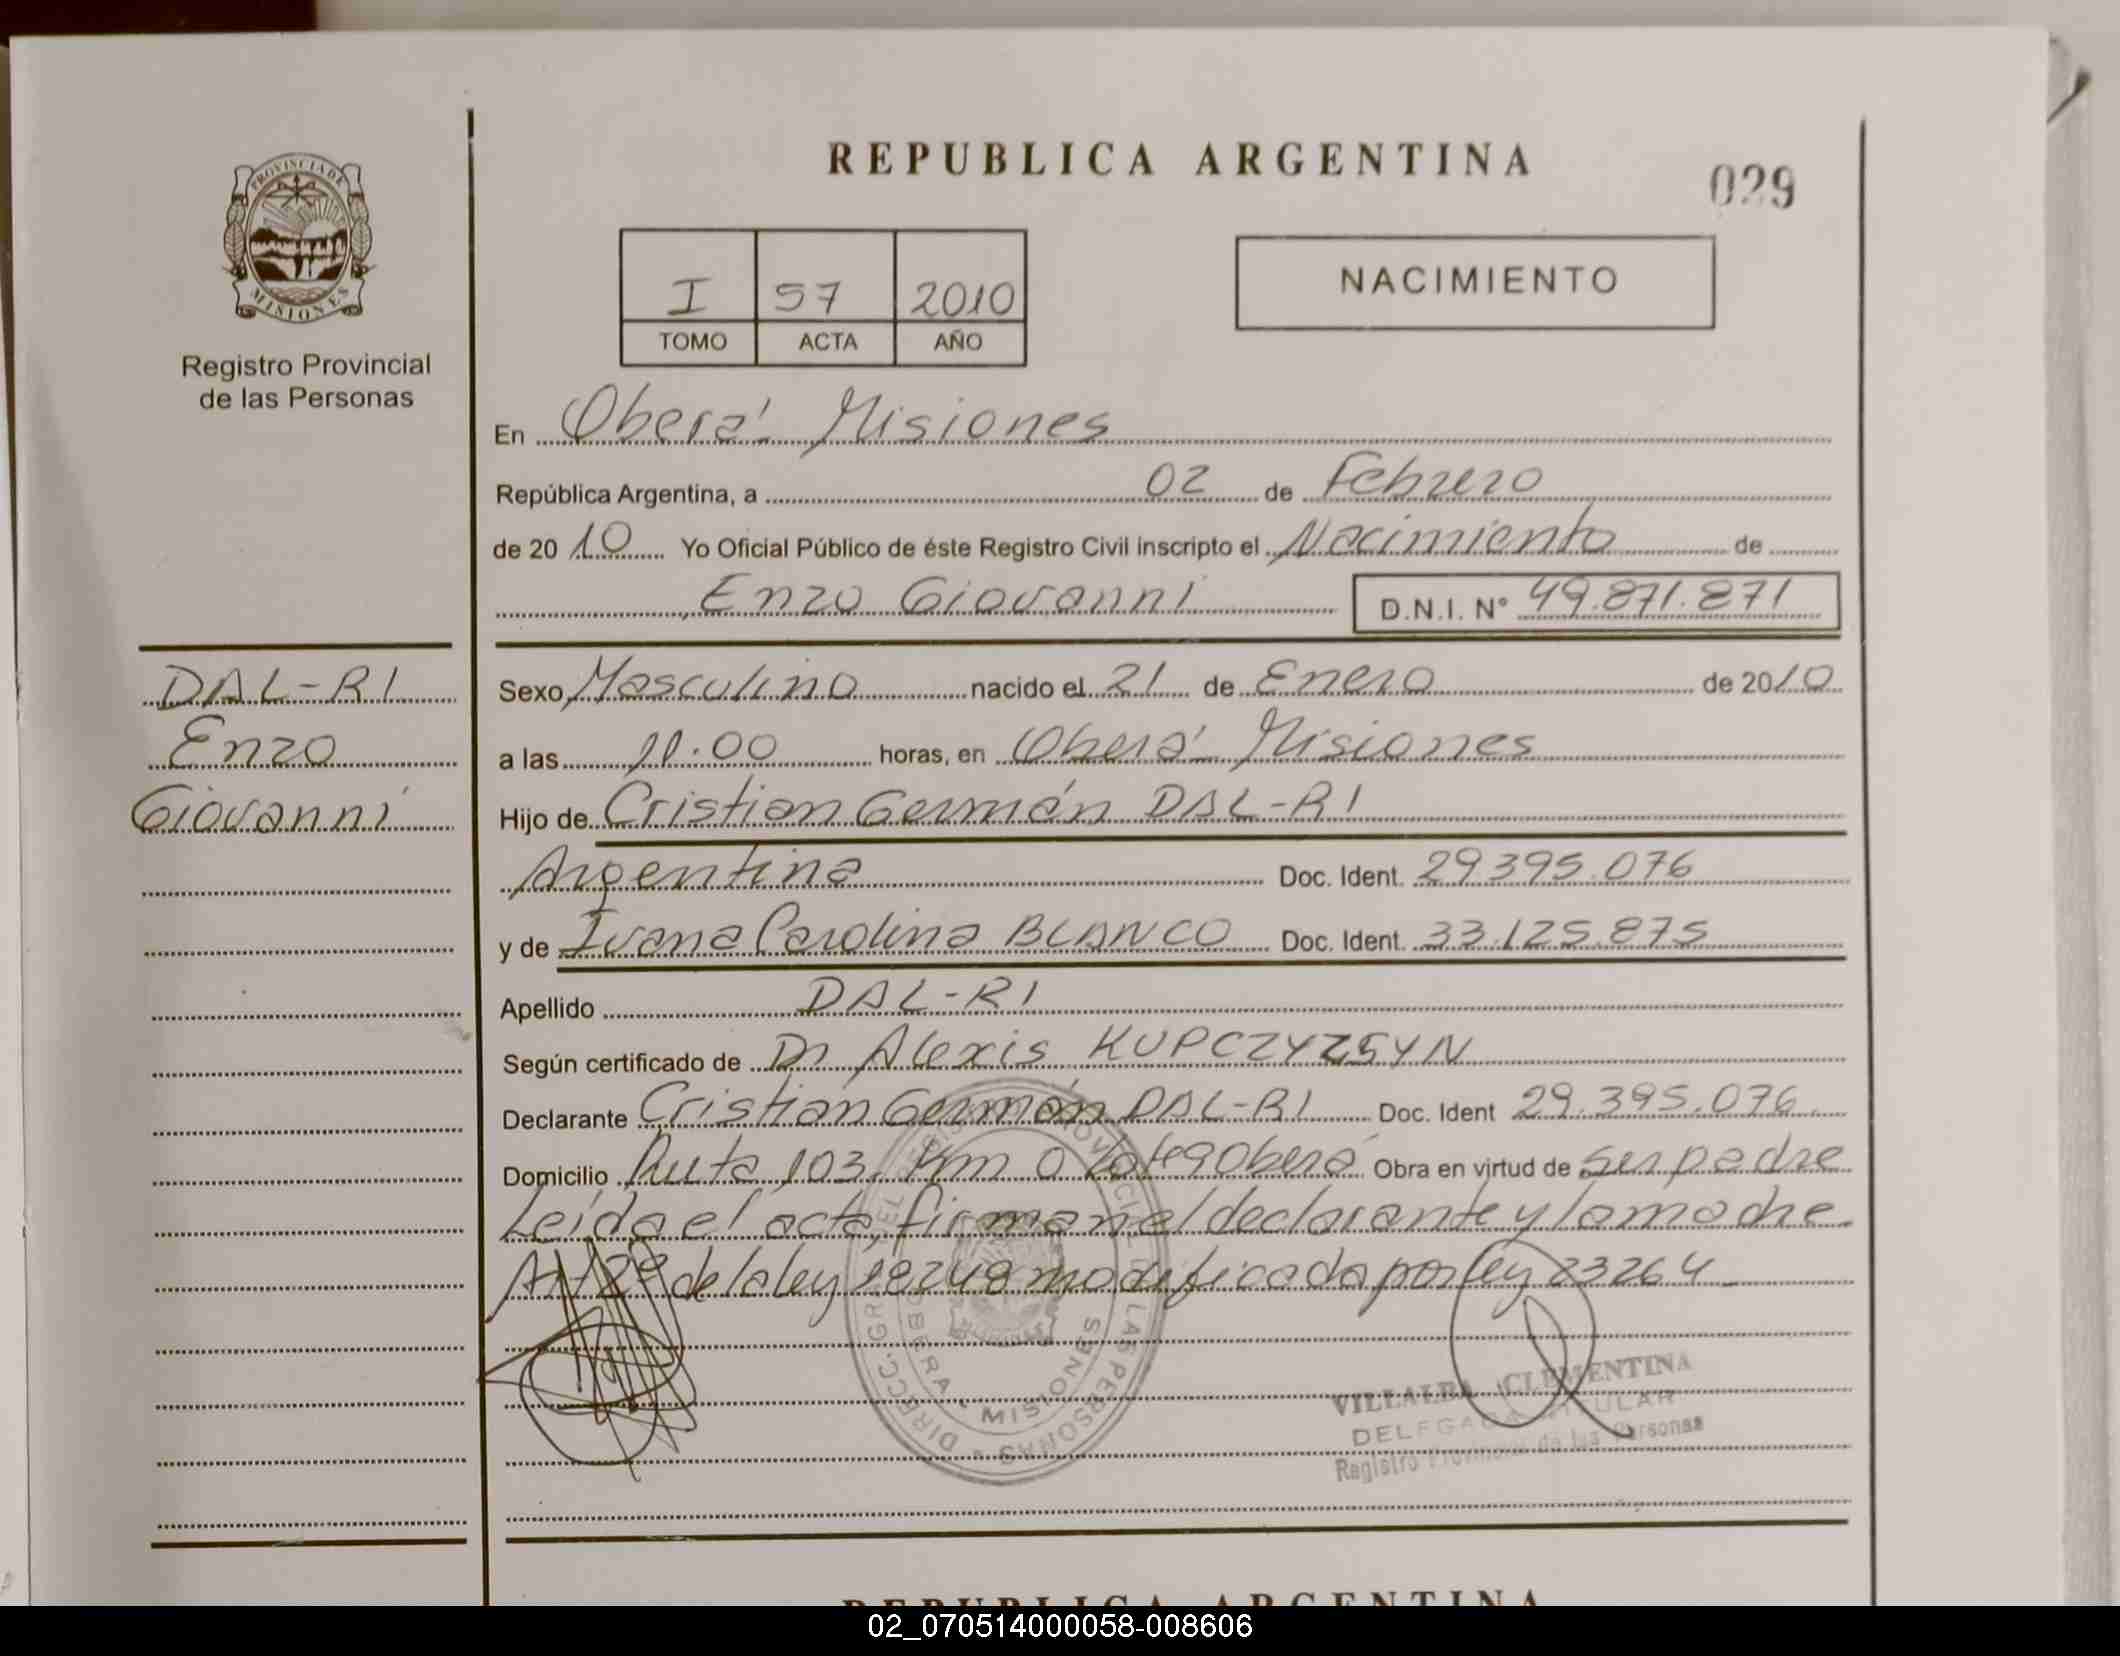 REPUBLICA ARGENTINA
029
PROVINCIA DE
MISIONES
Registro Provincial
de las Personas
I 57 2010
TOMO ACTA AÑO
NACIMIENTO
En Oberá Misiones
República Argentina, a 02 de Febrero
de 2010 Yo Oficial Público de éste Registro Civil inscripto el Nacimiento de
Enzo Giovanni D.N.I. N° 49.871.871
DAL-RI
Enzo
Giovanni
Sexo Masculino nacido el 21 de Enero de 2010
a las 11.00 horas, en Oberá Misiones
Hijo de Cristian Germán DAL-RI
Argentina Doc. Ident. 29.395.076
y de Ivana Carolina BLANCO Doc. Ident. 33.125.875
Apellido DAL-RI
Según certificado de Dr Alexis KUPCZYZSYN
Declarante Cristian Germán DAL-RI Doc. Ident 29.395.076
Domicilio Ruta 103 Km 0 Oberá Obra en virtud de ser padre
Leída el acta, firman el declarante y la madre
Art 2º de la ley 18248 modificada por ley 23264
OBERA - MISIONES
VILLALBA CLEMENTINA
DELEGADA TITULAR
Registro Provincial de las Personas
REPUBLICA ARGENTINA
02_070514000058-008606